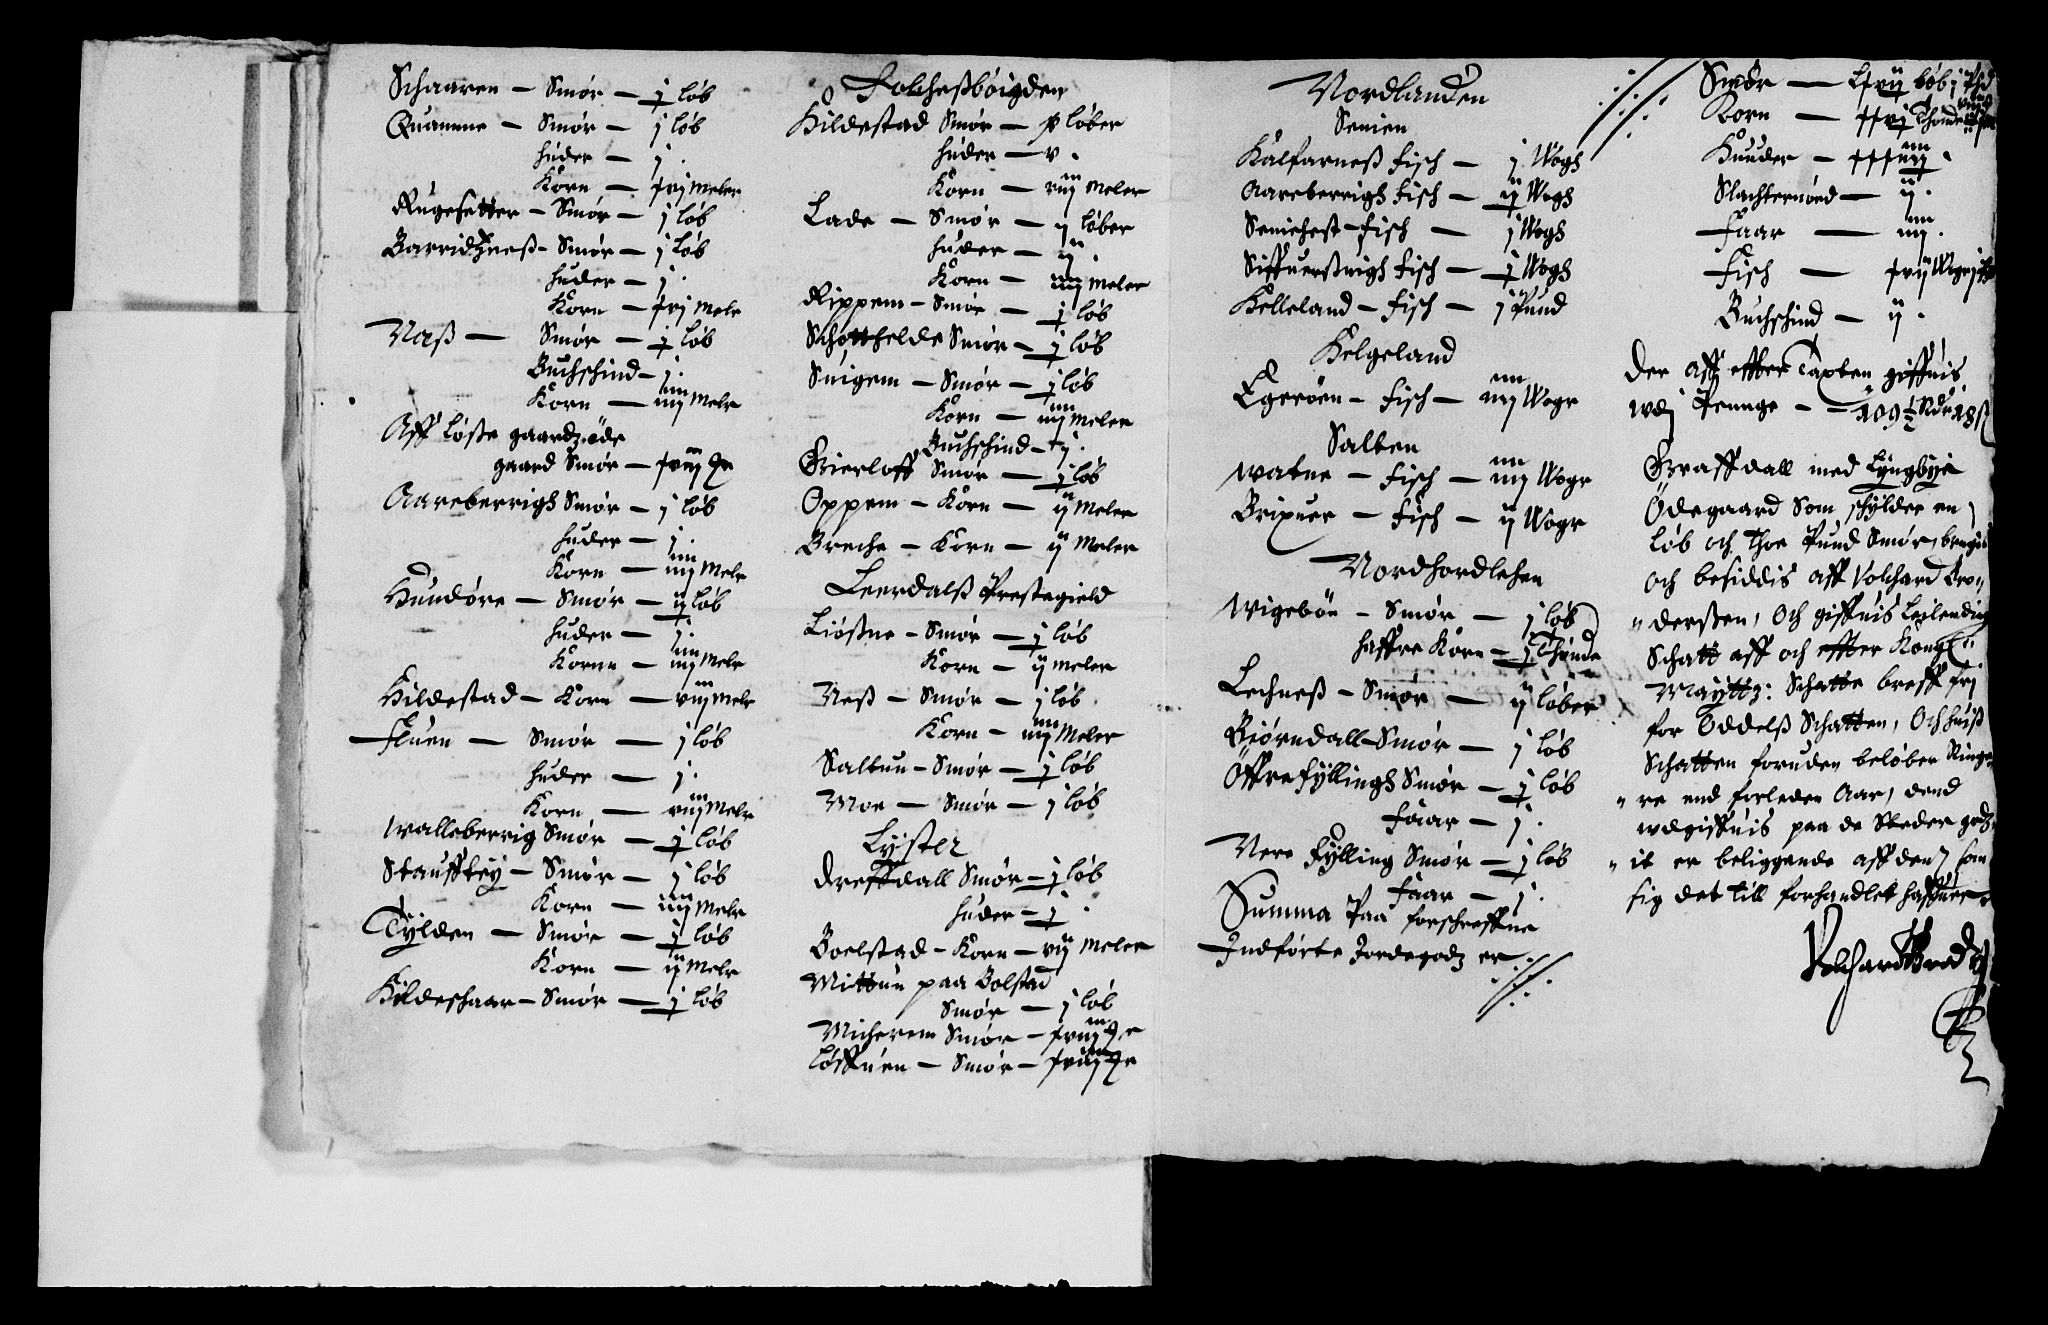 Schaaren — Smør — j løb
Quamme — Smør — j løb
huder — j.
Korn — xvj meler
Rugesetter — Smør — j løb
Barridzneß — Smør — j løb
huder — j.
Korn — xvj melr
Naß — Smør — j løb
Buchschind — j.
Korn — iiij melr
Aff Løste gaardz øde
gaard Smør — xviij
Aareberrigh Smør — j løb
huder — j.
Korn — iiij melr
Hundøre — Smør — ij løb
huder — j.
Kornn — iiij melr
Hildestad — Korn — viij melr
Fluen — Smør — j løb
huder — j.
Korn — viij melr
Walleberrig Smør — j løb
Staufftey — Smør — j løb
Korn — iiij melr
Tylden — Smør — j løb
Korn — ij melr
Kildeschaar — Smør — j løb
Hildestad Smør — løber
huder — v.
Korn — viij meler
Lade — Smør — ij løber
huder — ij.
Korn — iiij meler
Rippem — Smør — j løb
Schottheldr Smør — j løb
Snigem — Smør — j løb
Korn — iiij meler
Buchschind — j.
Gierloff Smør — j løb
Oppem — Korn — ij meler
Breche — Korn — ij meler
Leerdalß Prestegield
Liøßne — Smør — j løb
Korn — ij meler
Neß — Smør — j løb
Korn — iiij meler
Saltun — Smør — j løb
Moe — Smør — j løb
Lyster
Dreffdall Smør — j løb
huder — j.
Boelstad — Korn — vij meler
Mittun paa Bolstad
Smør — j løb
Micherem Smør — xviij
Løffuen — Smør — xviij
Nordlanden
Senien
Kalfarneß fisch — j Wogh
Aareberrigh fisch — ij Wogh
Seniehest — fisch — j Wogh
Siffuerßuigh fisch — j Wogh
Helleland — fisch — j Pund
Helgeland
Egerøen — fisch — iiij Wogr
Salten
Watne — fisch — iiij Wogr
Brixuer — fisch — ij Wogr
Nordhordlehen
Wigebøe — Smør — j løb
haffre Korn — j Thønde
Lechneß — Smør — ij løber
Biørndall — Smør — j løb
Øffrefyllingh Smør — j løb
Faar — j.
Nere Fylling Smør — j løb
Faar — j.
Summa Paa forschreffne
Indførte Jordegodz er
Smør — løb j Pd
Korn — xxvj Thønde
Huuder —
Slachternød — ij.
Faar — iiij.
Fisch — xvij Wogr
Buchschind — ij.
Der aff effter Taxten giffuis
wdj Penge — 109½ Rdr 18ß
Graffdall med Lyngbye
Ødegaard som schylder en
Løb och Thoe Pund Smør, brugis
och besiddis aff Volchard Bro-
derßen, Och giffuis Leilending
Schatt aff och effter Kongl:
Maytz: Schatte breff frj
for Oddelß Schatten, Och huiß
Schatten foruden beløber Ringe-
re end forleden Aar, dend
wdgiffuis paa de Steder
it er beliggende aff dem som
sig det till forhandlet haffuer